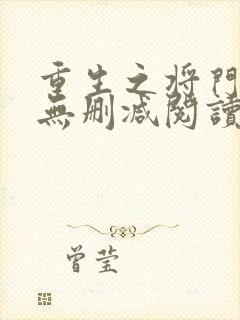 重生之将門
無删减閱讀
曾莹